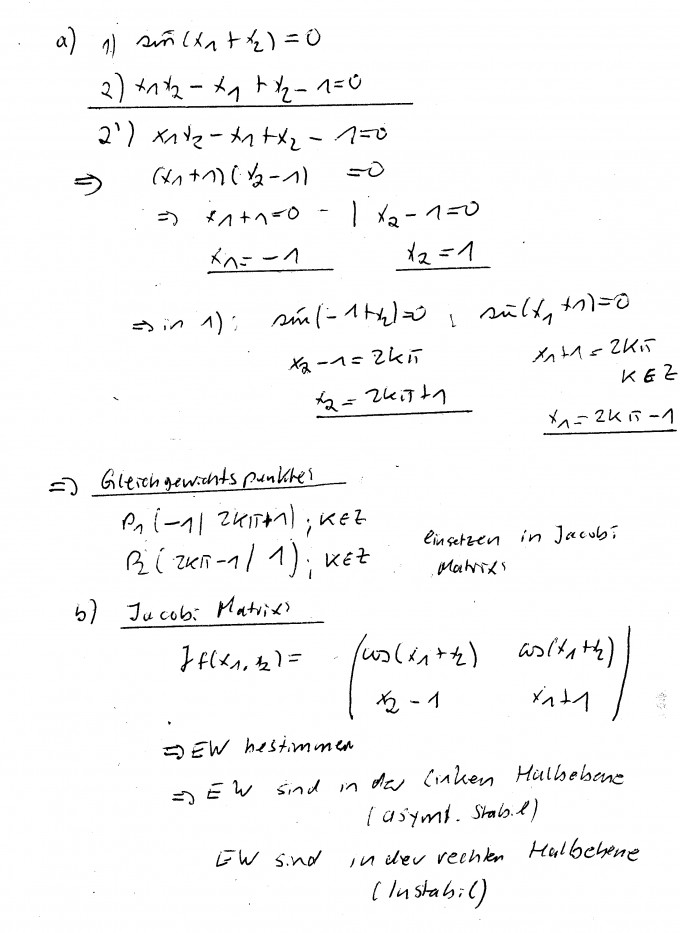 a) 1) sin(x₁ + x₂) = 0
2) x₁x₂ - x₁ + x₂ - 1 = 0
2') x₁x₂ - x₁ + x₂ - 1 = 0
⇒ (x₁ + 1)(x₂ - 1) = 0
⇒ x₁ + 1 = 0 - | x₂ - 1 = 0
x₁ = -1 x₂ = 1
⇒ in 1): sin(-1 + x₂) = 0 ; sin(x₁ + 1) = 0
x₂ - 1 = 2kπ x₁ + 1 = 2kπ
k ∈ Z
x₂ = 2kπ + 1
x₁ = 2kπ - 1
⇒ Gleichgewichtspunkte:
P₁ (-1 | 2kπ+1) ; k ∈ Z
P₂ (2kπ-1 | 1) ; k ∈ Z
einsetzen in Jacobi
Matrix:
b) Jacobi Matrix:
Jf(x₁, x₂) = ( cos(x₁ + x₂) cos(x₁ + x₂) )
x₂ - 1 x₁ + 1
⇒ EW bestimmen
⇒ EW sind in der linken Halbebene
(asymt. Stabil)
EW sind in der rechten Halbebene
(Instabil)